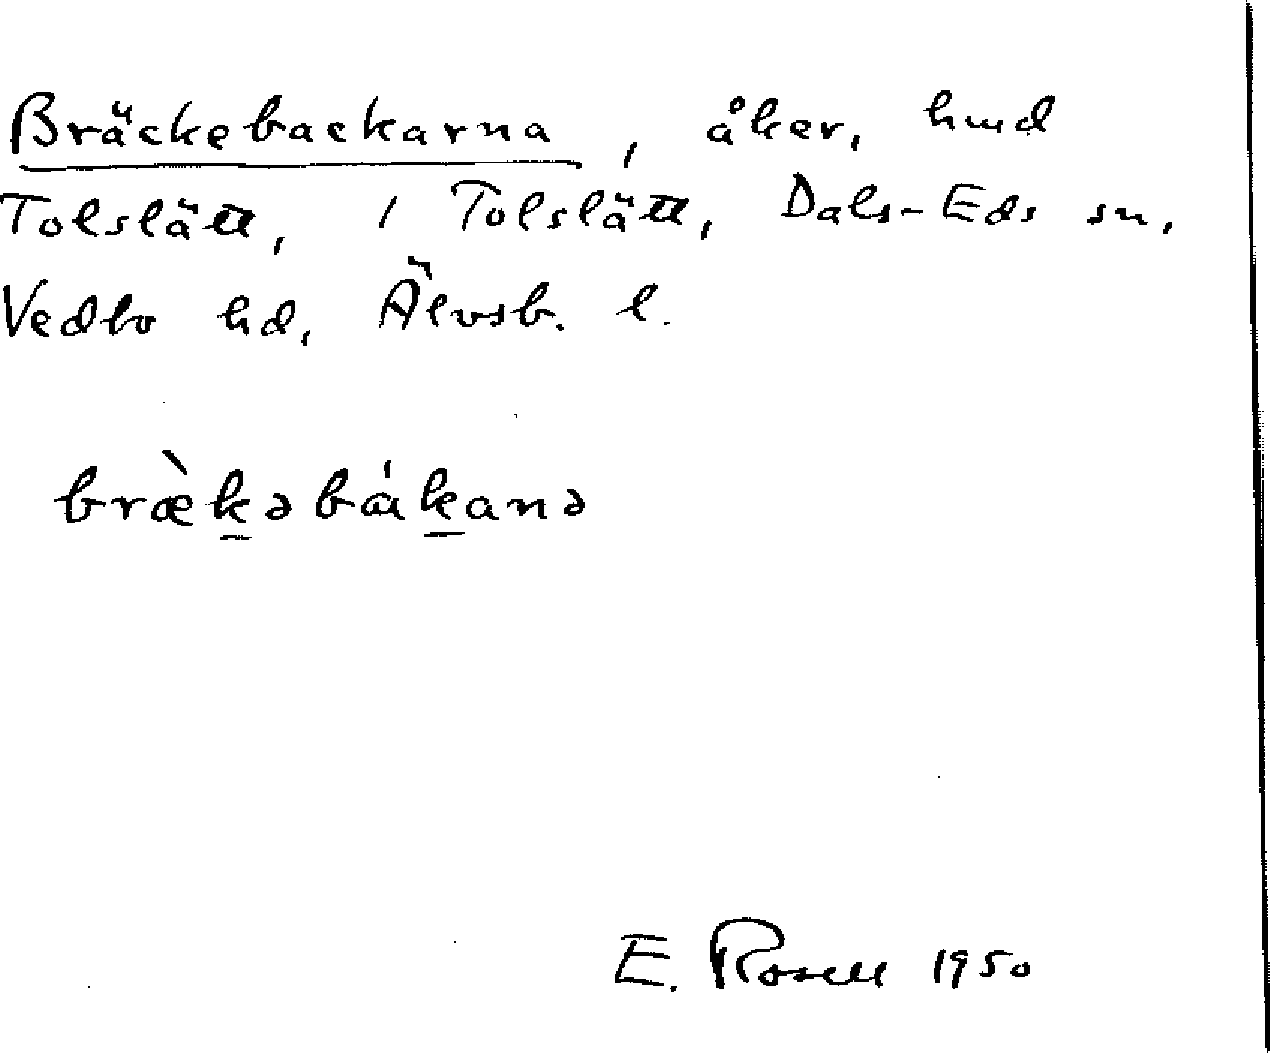 Bräckebackarna, åker, hmd
Tolslätt, 1 Tolslätt, Dals-Eds sn,
Vedbo hd, Älvsb. l.
bræ̀k̲əbák̲anə
E. Rosell 1950